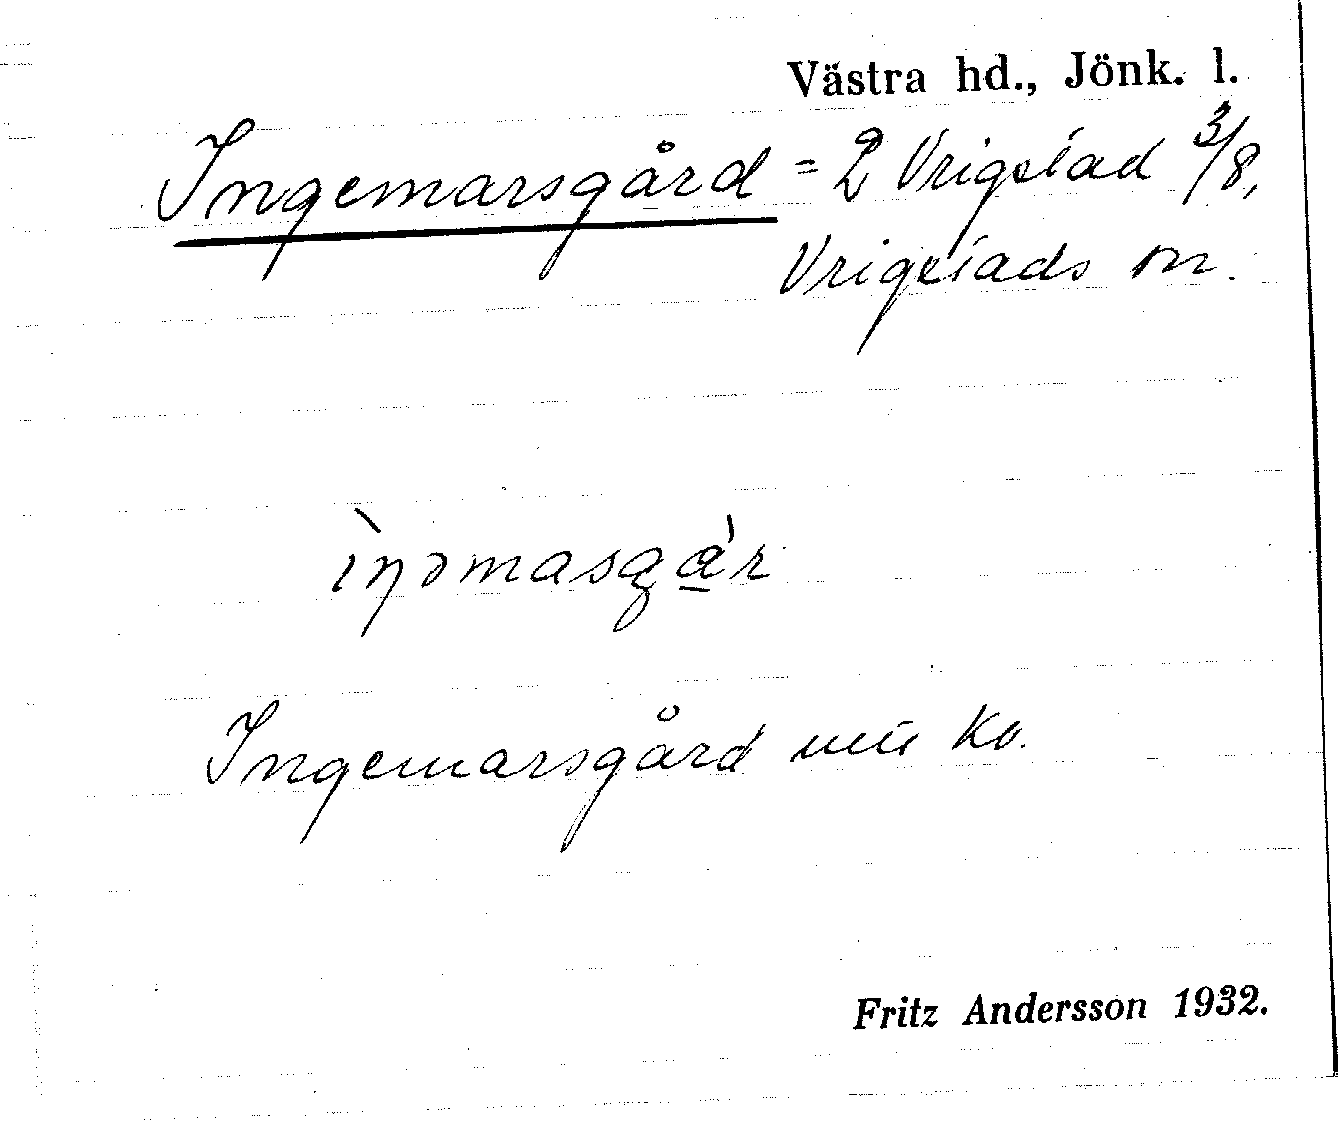 Västra hd., Jönk. l.
Ingemarsgård = 2 Vrigstad 3/8,
Vrigstads sn.
ìŋəmasgår
Ingemarsgård Ko.
Fritz Andersson 1932.